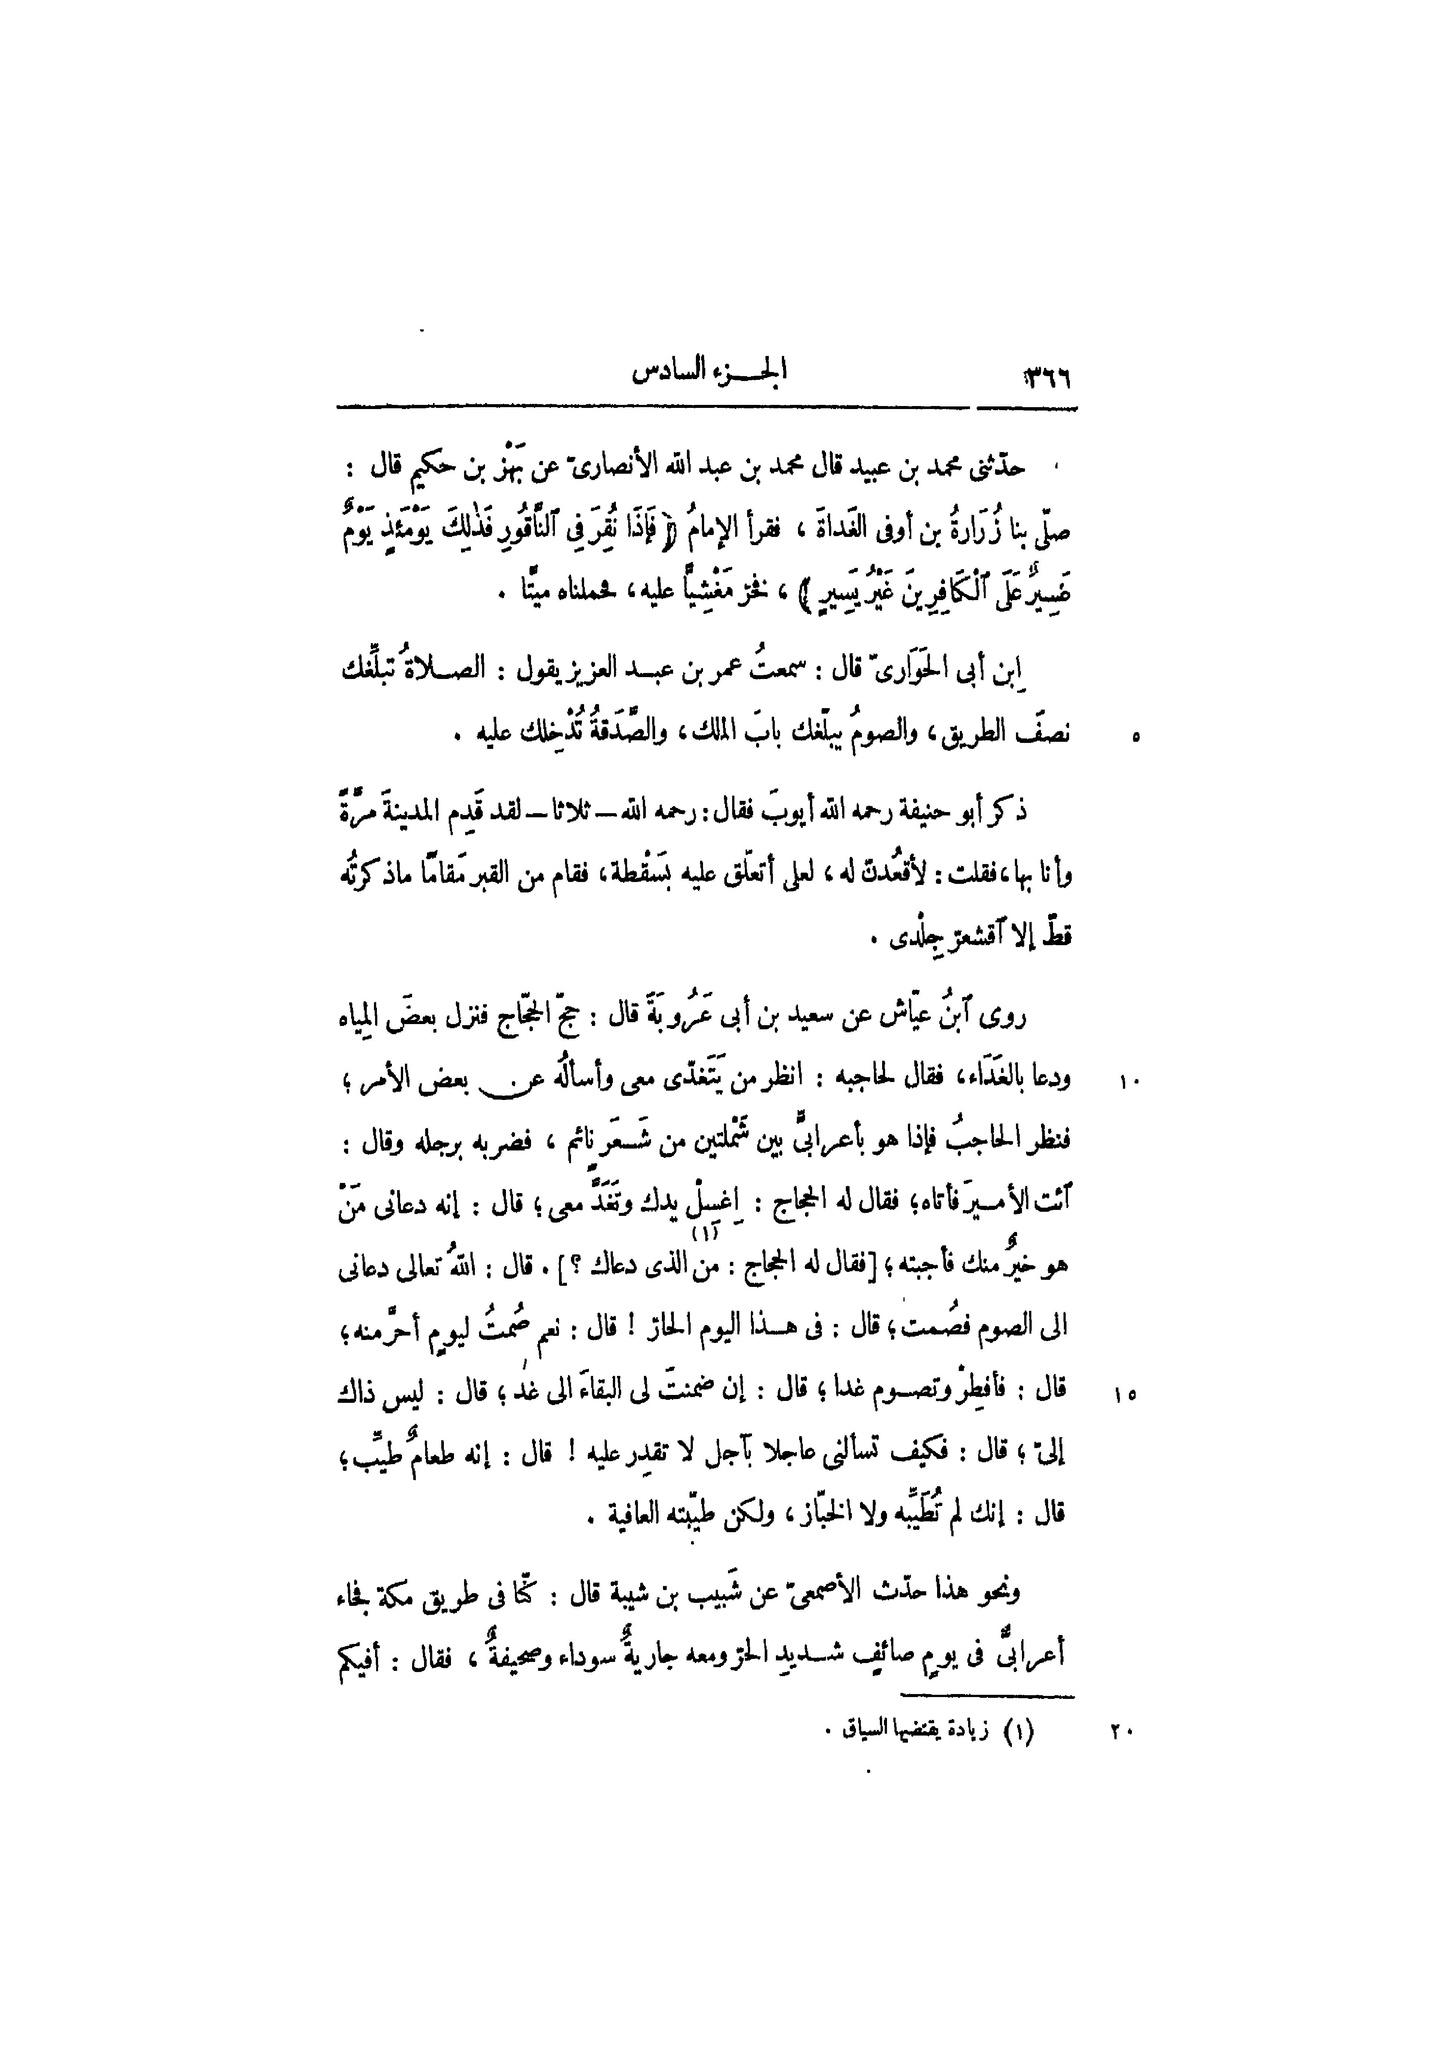 ٣٦٦ الجـزء السادس
حدّثنى محمد بن عبيد قال محمد بن عبد الله الأنصارىّ عن بَهْز بن حكيم قال :
صلّى بنا زُرَارةُ بن أوفى الغَداةَ ، فقرأ الإمامُ ﴿ فَإِذَا نُقِرَ فِي ٱلنَّاقُورِ فَذٰلِكَ يَوْمَئِذٍ يَوْمٌ
عَسِيرٌ عَلَى ٱلْكَافِرِينَ غَيْرُ يَسِيرٍ ﴾ ، فخرّ مَغْشِيًّا عليه، فحملناه ميّتًا .
اِبن أبى الحَوَارىّ قال : سمعتُ عمر بن عبـد العزيز يقول : الصـلاةُ تبلِّغك
نصفَ الطريق، والصومُ يبلّغك بابَ المالك، والصَّدَقةُ تُدْخِلك عليه .
٥
ذكر أبو حنيفة رحمه الله أيوبَ فقال: رحمه الله – ثلاثا – لقد قَدِم المدينةَ مرَّةً
وأنا بها، فقلت : لأقعُدنّ له، لعلى أتعلّق عليه بسَقْطة، فقام من القبر مَقامًا ماذكرتُه
قطّ إلا ٱقشعرّ جِلْدى .
روى ٱبنُ عيّاش عن سعيد بن أبى عَرُوبَةَ قال : حجّ الحجّاج فنزل بعضَ المِياه
ودعا بالغَدَاء، فقال لحاجبه : انظر من يَتَغدّى معى وأسألُه عن بعض الأمر ؛
١٠
فنظر الحاجبُ فإذا هو بأعرابىٍّ بين شَمْلتين من شَـعَرٍ نائم ، فضربه برجله وقال :
ٱئت الأمـيرَ فأتاه؛ فقال له الحجاج : اِغسِلْ يدك وتَغَدَّ معى؛ قال : إنه دعانى مَنْ
هو خيرٌ منك فأجبته ؛ [فقال له الحجاج : من الذى دعاك ؟](١) . قال : اللهُ تعالى دعانى
الى الصوم فصُمت؛ قال : فى هـذا اليوم الحارّ ! قال : نعم صُمتُ ليومٍ أحرَّ منه؛
قال : فأفطِرْ وتصـوم غدا ؛ قال : إن ضمنتَ لى البقاءَ الى غد ؛ قال : ليس ذاك
١٥
إلىّ ؛ قال : فكيف تسألنى عاجلا بآجل لا تقدِر عليه ! قال : إنه طعامٌ طيِّب؛
قال : إنك لم تُطَيِّبه ولا الخبّاز، ولكن طيّبته العافية .
ونحو هذا حدّث الأصمعىّ عن شَبيب بن شيبة قال : كنّا فى طريق مكة فجاء
أعرابىٌّ فى يومٍ صائفٍ شـديدِ الحرّ ومعه جاريةٌ سوداء وصحيفةٌ ، فقال : أفيكم
(١) زيادة يقتضيها السياق .
٢٠